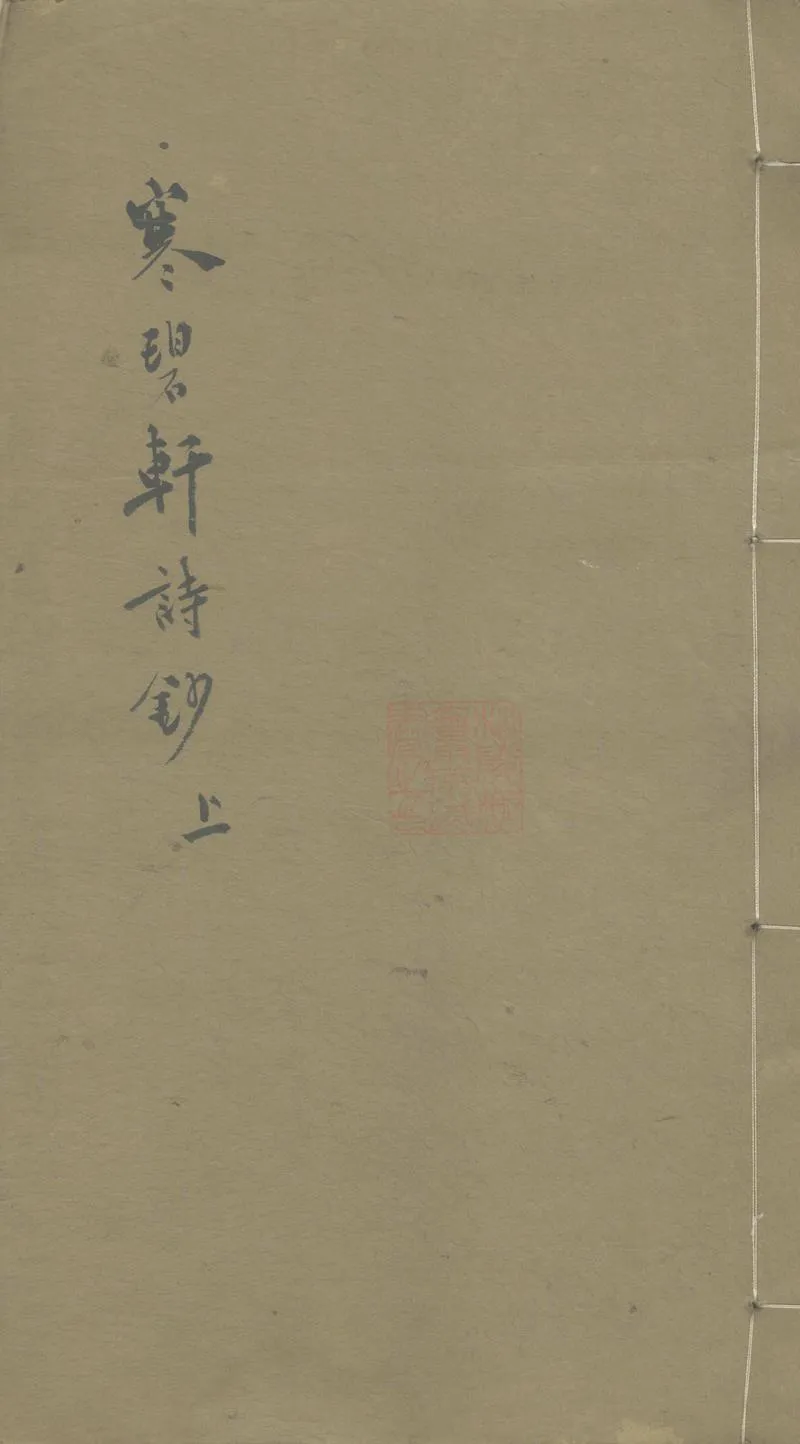 寒碧軒詩鈔 上